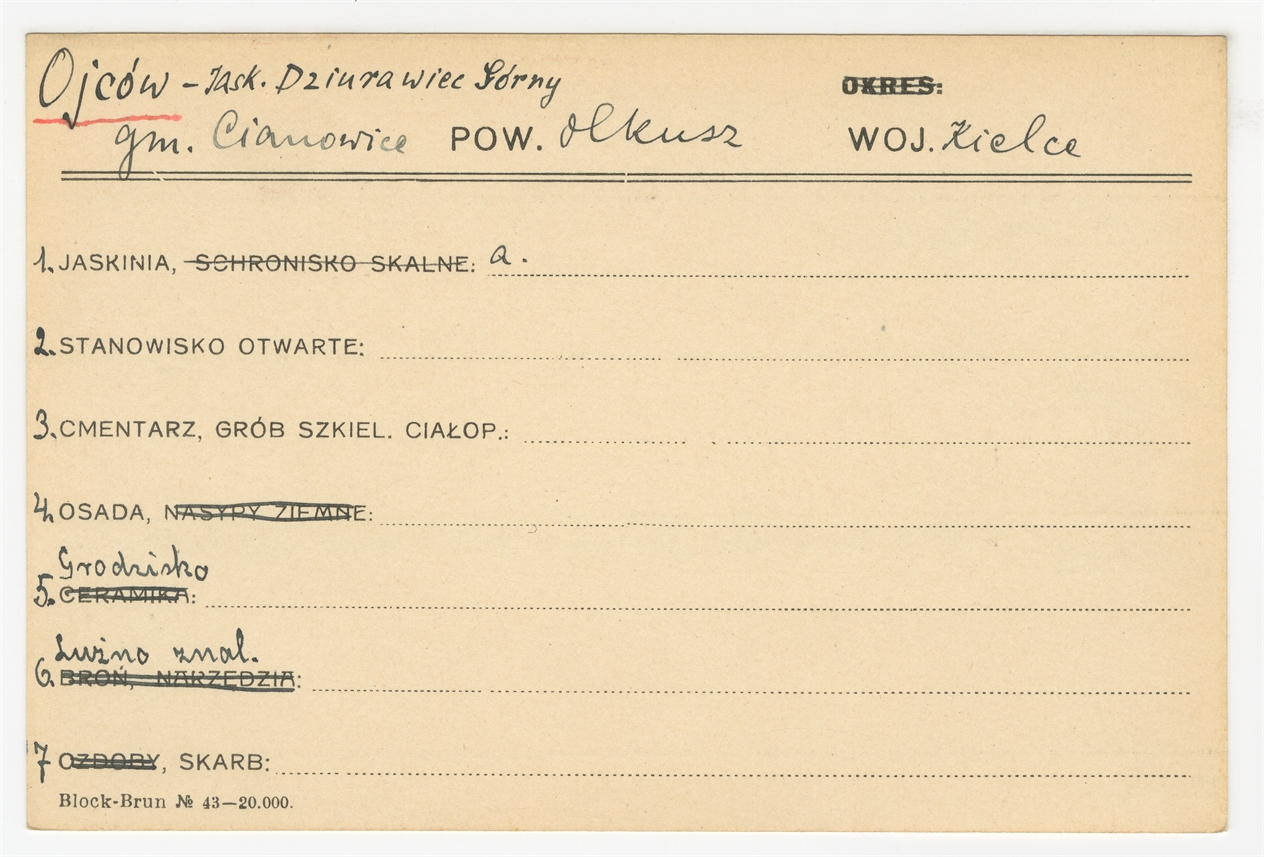 Ojców - Jask. Dziurawiec Górny OKRES:
gm. Cianowice POW. Olkusz WOJ. Kielce
1. JASKINIA, SCHRONISKO SKALNE: a.
2. STANOWISKO OTWARTE:
3. CMENTARZ, GRÓB SZKIEL. CIAŁOP.:
4. OSADA, NASYPY ZIEMNE:
Grodzisko
5. CERAMIKA:
Luźno znal.
6. BROŃ, NARZĘDZIA:
7 OZDOBY, SKARB:
Block-Brun № 43—20.000.